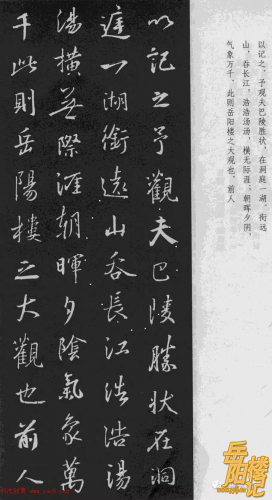 以记之予觀夫巴陵勝状在洞
庭一湖銜遠山吞長江浩浩湯
湯橫無際涯朝暉夕陰氣象萬
千此則岳陽樓之大觀也前人
以记之。予观夫巴陵胜状，在洞庭一湖，衔远
山，吞长江，浩浩汤汤，横无际涯；朝晖夕阴，
气象万千，此则岳阳楼之大观也，前人
岳阳楼记